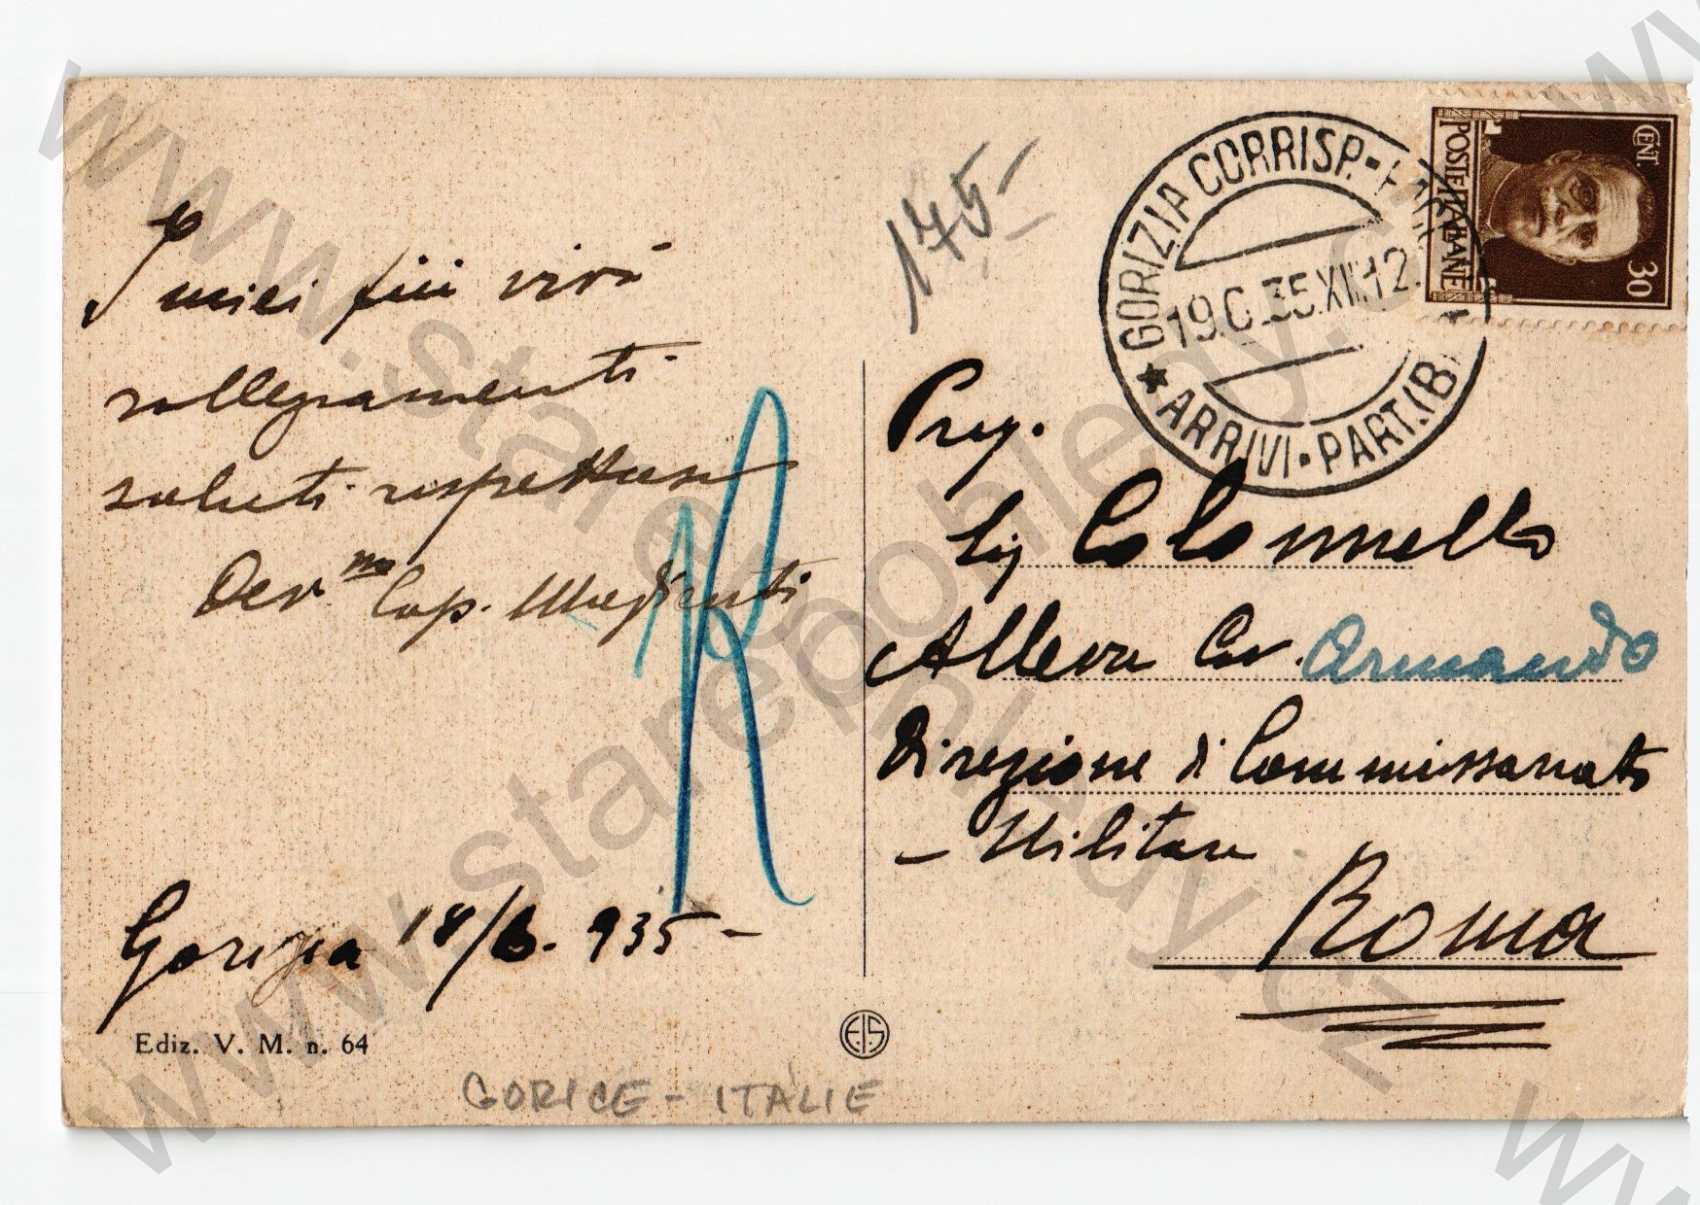 I miei più vivi
rallegramenti
saluti rispettosi
Dev.mo Cap.
Gorizia 18/6. 935-
Ediz. V. M. n. 64
GORICE - ITALIE
175-
GORIZIA CORRISP.
19.6.35.XIII.12
★ ARRIVI-PART.(B
POSTE ITALIANE
CENT. 30
Preg.
Sig Colonnello
Alleva Cav. Armando
Direzione di Commissariato
- Militare
Roma
EIS
www.starepohledy.cz
www.starepohledy.cz